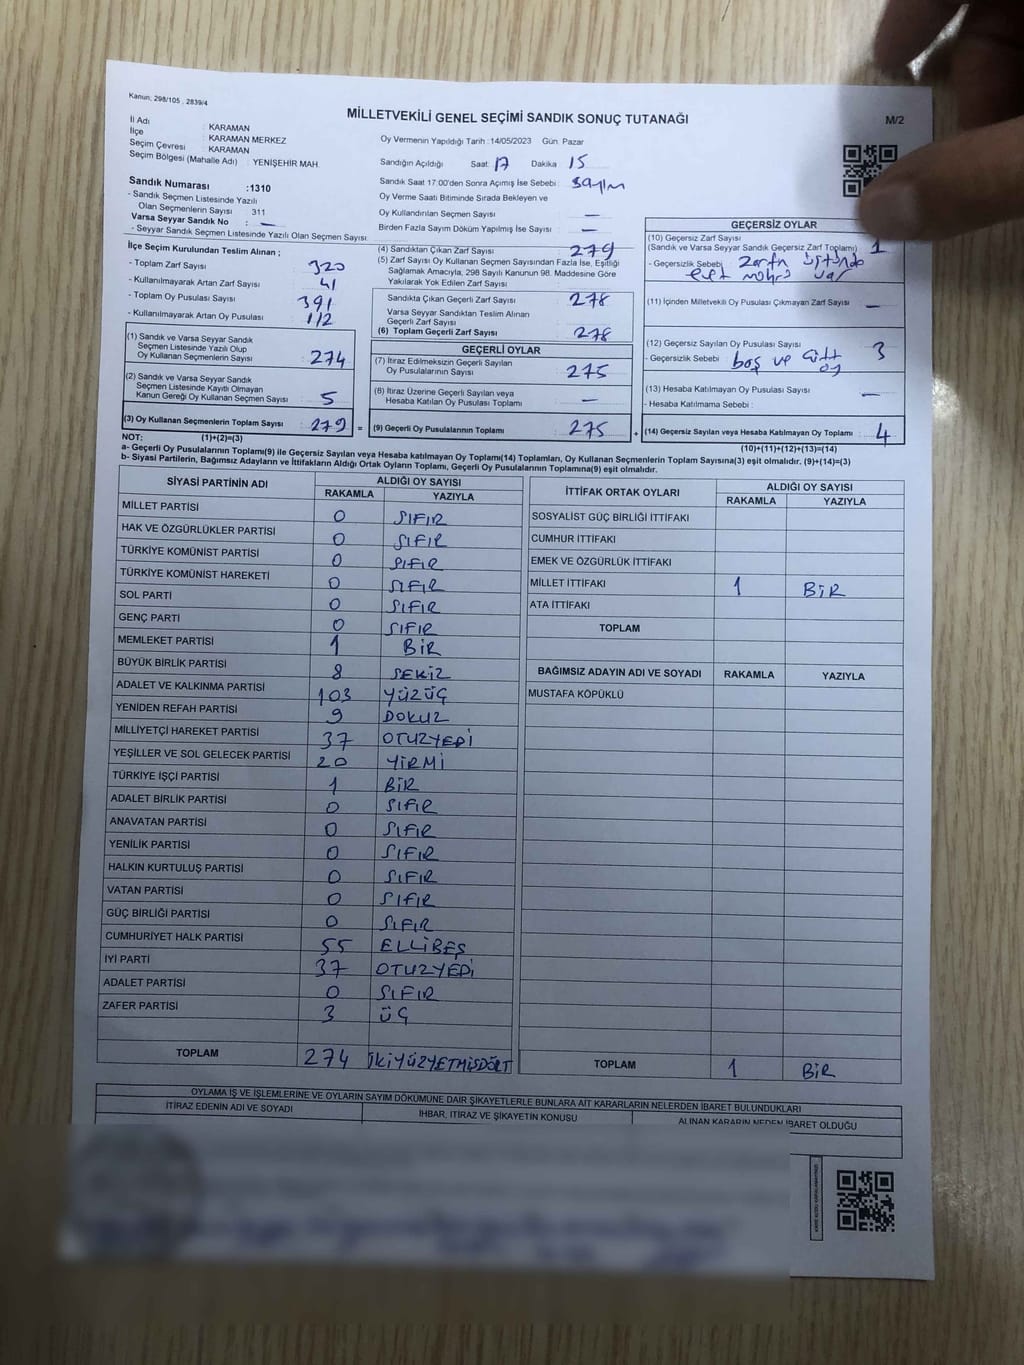 Kanun; 298/105 , 2839/4
MİLLETVEKİLİ GENEL SEÇİMİ SANDIK SONUÇ TUTANAĞI
M/2
İl Adı : KARAMAN
İlçe : KARAMAN MERKEZ
Seçim Çevresi : KARAMAN
Seçim Bölgesi (Mahalle Adı) : YENİŞEHİR MAH.
Oy Vermenin Yapıldığı Tarih :14/05/2023 Gün: Pazar
Sandığın Açıldığı Saat: 17 Dakika : 15
Sandık Saat 17:00'den Sonra Açılmış İse Sebebi : sayım
Oy Verme Saati Bitiminde Sırada Bekleyen ve
Oy Kullandırılan Seçmen Sayısı : —
Birden Fazla Sayım Döküm Yapılmış İse Sayısı : —
Sandık Numarası :1310
- Sandık Seçmen Listesinde Yazılı
Olan Seçmenlerin Sayısı : 311
Varsa Seyyar Sandık No : —
- Seyyar Seçmen Listesinde Yazılı Olan Seçmen Sayısı:
İlçe Seçim Kurulundan Teslim Alınan ;
- Toplam Zarf Sayısı : 320
- Kullanılmayarak Artan Zarf Sayısı : 41
- Toplam Oy Pusulası Sayısı : 391
- Kullanılmayarak Artan Oy Pusulası : 112
(1) Sandık ve Varsa Seyyar Sandık
Seçmen Listesinde Yazılı Olup
Oy Kullanan Seçmenlerin Sayısı : 274
(2) Sandık ve Varsa Seyyar Sandık
Seçmen Listesinde Kayıtlı Olmayan
Kanun Gereği Oy Kullanan Seçmen Sayısı : 5
(3) Oy Kullanan Seçmenlerin Toplam Sayısı : 279
(4) Sandıktan Çıkan Zarf Sayısı : 279
(5) Zarf Sayısı Oy Kullanan Seçmen Sayısından Fazla İse, Eşitliği
Sağlamak Amacıyla, 298 Sayılı Kanunun 98. Maddesine Göre
Yakılarak Yok Edilen Zarf Sayısı :
Sandıkta Çıkan Geçerli Zarf Sayısı : 278
Varsa Seyyar Sandıktan Teslim Alınan
Geçerli Zarf Sayısı :
(6) Toplam Geçerli Zarf Sayısı : 278
GEÇERLİ OYLAR
(7) İtiraz Edilmeksizin Geçerli Sayılan
Oy Pusulalarının Sayısı : 275
(8) İtiraz Üzerine Geçerli Sayılan veya
Hesaba Katılan Oy Pusulası Toplamı : —
= (9) Geçerli Oy Pusulalarının Toplamı : 275
GEÇERSİZ OYLAR
(10) Geçersiz Zarf Sayısı
(Sandık ve Varsa Seyyar Sandık Geçersiz Zarf Toplamı) : 1
- Geçersizlik Sebebi : zarfın üstünde
evet mührü var
(11) İçinden Milletvekili Oy Pusulası Çıkmayan Zarf Sayısı : —
(12) Geçersiz Sayılan Oy Pusulası Sayısı : 3
- Geçersizlik Sebebi : boş ve çift
oy
(13) Hesaba Katılmayan Oy Pusulası Sayısı : —
- Hesaba Katılmama Sebebi :
+ (14) Geçersiz Sayılan veya Hesaba Katılmayan Oy Toplamı : 4
NOT: (1)+(2)=(3)
(10)+(11)+(12)+(13)=(14)
a- Geçerli Oy Pusulalarının Toplamı(9) ile Geçersiz Sayılan veya Hesaba katılmayan Oy Toplamı(14) Toplamları, Oy Kullanan Seçmenlerin Toplam Sayısına(3) eşit olmalıdır. (9)+(14)=(3)
b- Siyasi Partilerin, Bağımsız Adayların ve İttifakların Aldığı Ortak Oyların Toplamı, Geçerli Oy Pusulalarının Toplamına(9) eşit olmalıdır.
SİYASİ PARTİNİN ADI ALDIĞI OY SAYISI
RAKAMLA YAZIYLA
MİLLET PARTİSİ 0 SIFIR
HAK VE ÖZGÜRLÜKLER PARTİSİ 0 SIFIR
TÜRKİYE KOMÜNİST PARTİSİ 0 SIFIR
TÜRKİYE KOMÜNİST HAREKETİ 0 SIFIR
SOL PARTİ 0 SIFIR
GENÇ PARTİ 0 SIFIR
MEMLEKET PARTİSİ 1 BİR
BÜYÜK BİRLİK PARTİSİ 8 SEKİZ
ADALET VE KALKINMA PARTİSİ 103 YÜZÜÇ
YENİDEN REFAH PARTİSİ 9 DOKUZ
MİLLİYETÇİ HAREKET PARTİSİ 37 OTUZYEDİ
YEŞİLLER VE SOL GELECEK PARTİSİ 20 YİRMİ
TÜRKİYE İŞÇİ PARTİSİ 1 BİR
ADALET BİRLİK PARTİSİ 0 SIFIR
ANAVATAN PARTİSİ 0 SIFIR
YENİLİK PARTİSİ 0 SIFIR
HALKIN KURTULUŞ PARTİSİ 0 SIFIR
VATAN PARTİSİ 0 SIFIR
GÜÇ BİRLİĞİ PARTİSİ 0 SIFIR
CUMHURİYET HALK PARTİSİ 55 ELLİBEŞ
İYİ PARTİ 37 OTUZYEDİ
ADALET PARTİSİ 0 SIFIR
ZAFER PARTİSİ 3 ÜÇ
TOPLAM 274 İKİYÜZYETMİŞDÖRT
İTTİFAK ORTAK OYLARI ALDIĞI OY SAYISI
RAKAMLA YAZIYLA
SOSYALİST GÜÇ BİRLİĞİ İTTİFAKI
CUMHUR İTTİFAKI
EMEK VE ÖZGÜRLÜK İTTİFAKI
MİLLET İTTİFAKI 1 BİR
ATA İTTİFAKI
TOPLAM
BAĞIMSIZ ADAYIN ADI VE SOYADI RAKAMLA YAZIYLA
MUSTAFA KÖPÜKLÜ
TOPLAM 1 BİR
OYLAMA İŞ VE İŞLEMLERİNE VE OYLARIN SAYIM DÖKÜMÜNE DAİR ŞİKAYETLERLE BUNLARA AİT KARARLARIN NELERDEN İBARET BULUNDUKLARI
İTİRAZ EDENİN ADI VE SOYADI İHBAR, İTİRAZ VE ŞİKAYETİN KONUSU ALINAN KARARIN NEDEN İBARET OLDUĞU